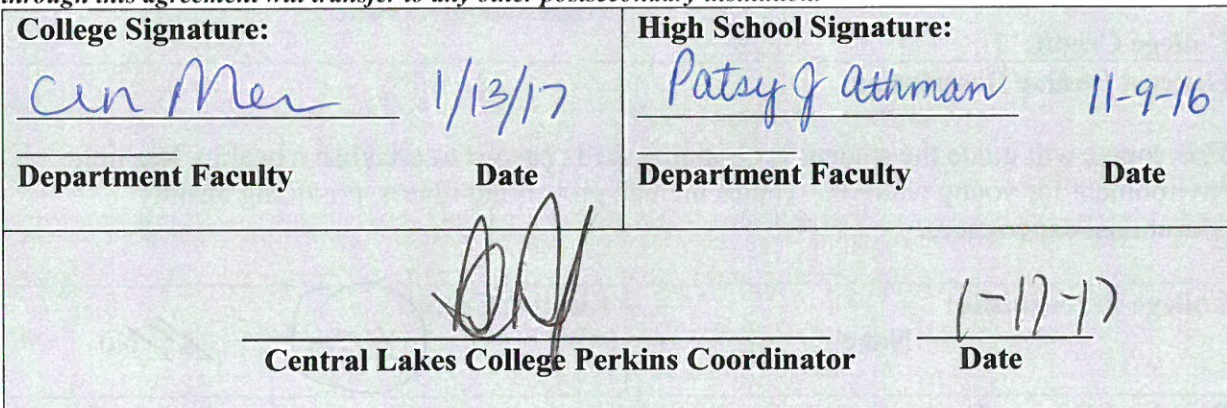 through this agreement will transfer to any other postsecondary institution.
College Signature:
High School Signature:
1/13/17
Patsy J Athman 11-9-16
Department Faculty Date
Department Faculty Date
1-17-17
Central Lakes College Perkins Coordinator Date